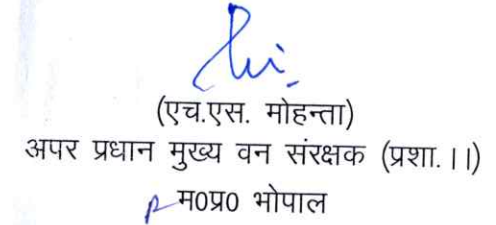 (एच.एस. मोहन्ता)
अपर प्रधान मुख्य वन संरक्षक (प्रशा.।।)
म0प्र0 भोपाल